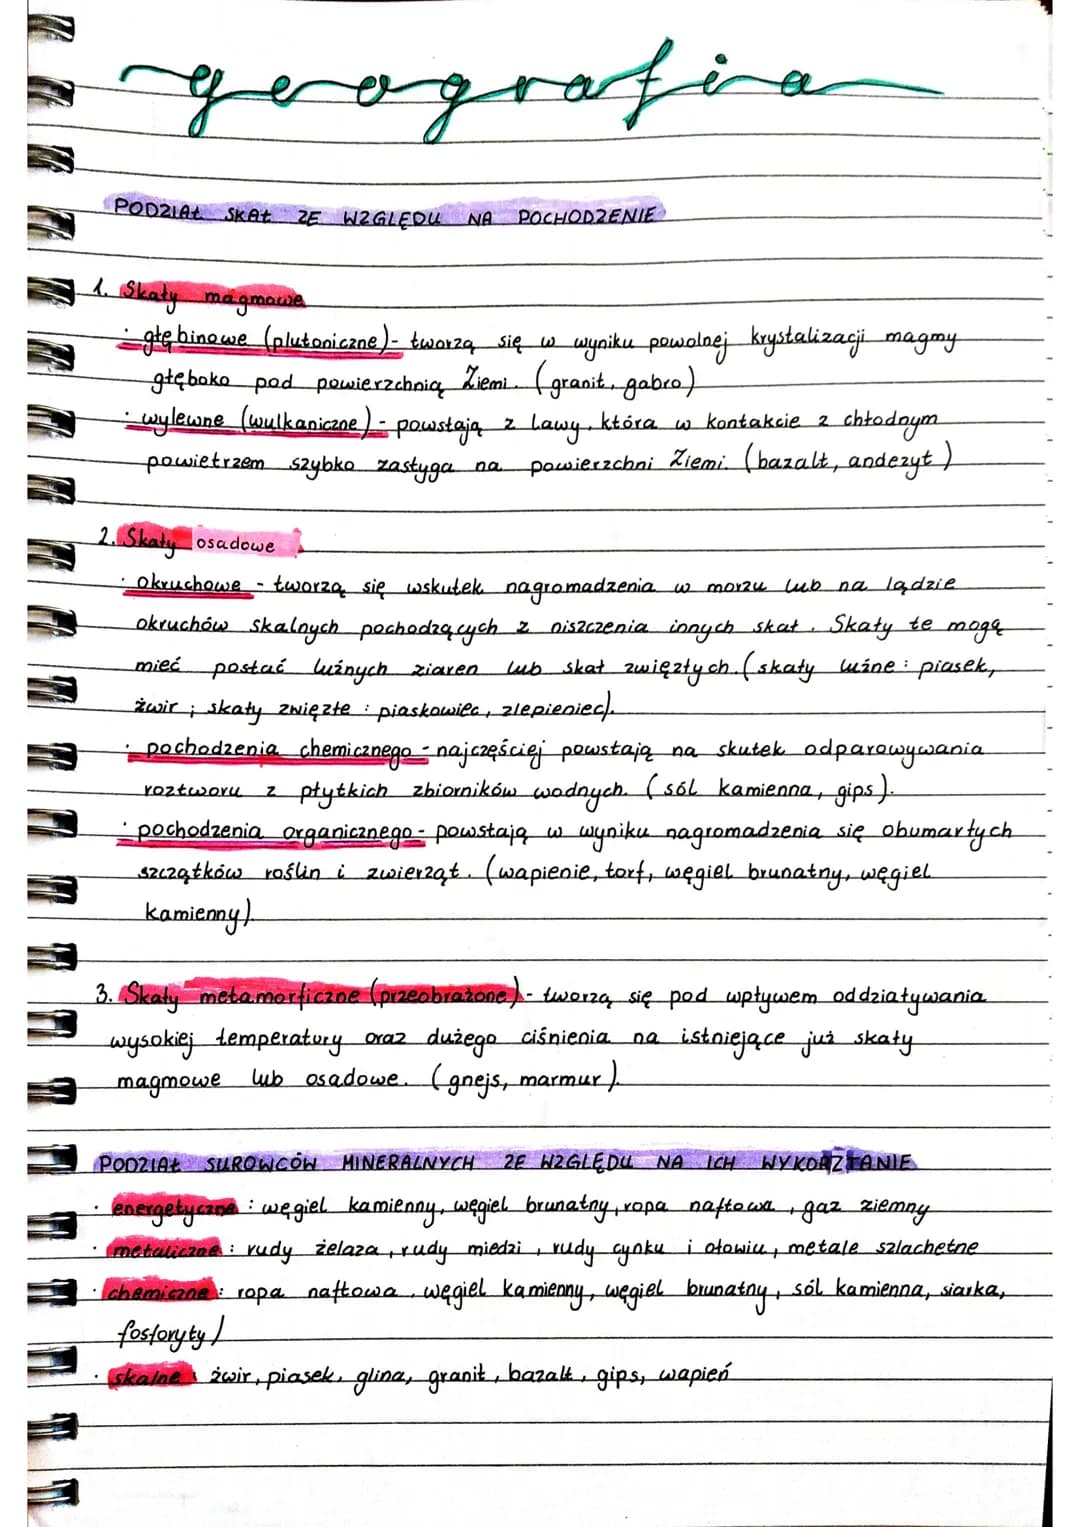 geografia
PODZIAŁ SKAŁ ZE WZGLĘDU NA POCHODZENIE
1. Skały magmowe
· głębinowe (plutoniczne) - tworzą się w wyniku powolnej krystalizacji magmy
głęboko pod powierzchnią Ziemi. (granit, gabro)
· wylewne (wulkaniczne) - powstają z lawy, która w kontakcie z chłodnym
powietrzem szybko zastyga na powierzchni Ziemi. (bazalt, andezyt)
2. Skały osadowe
· okruchowe - tworzą się wskutek nagromadzenia w morzu lub na lądzie
okruchów skalnych pochodzących z niszczenia innych skał. Skały te mogą
mieć postać luźnych ziaren lub skał zwięzłych. (skały luźne: piasek,
żwir; skały zwięzłe: piaskowiec, zlepieniec).
· pochodzenia chemicznego - najczęściej powstają na skutek odparowywania
roztworu z płytkich zbiorników wodnych. (sól kamienna, gips).
· pochodzenia organicznego - powstają w wyniku nagromadzenia się obumarłych
szczątków roślin i zwierząt. (wapienie, torf, węgiel brunatny, węgiel
kamienny).
3. Skały metamorficzne (przeobrażone) - tworzą się pod wpływem oddziaływania
wysokiej temperatury oraz dużego ciśnienia na istniejące już skały
magmowe lub osadowe. (gnejs, marmur).
PODZIAŁ SUROWCÓW MINERALNYCH ZE WZGLĘDU NA ICH WYKORZTANIE
· energetyczne: węgiel kamienny, węgiel brunatny, ropa naftowa, gaz ziemny
· metaliczne: rudy żelaza, rudy miedzi, rudy cynku i ołowiu, metale szlachetne
· chemiczne: ropa naftowa, węgiel kamienny, węgiel brunatny, sól kamienna, siarka,
fosforyty)
· skalne: żwir, piasek, glina, granit, bazalt, gips, wapień